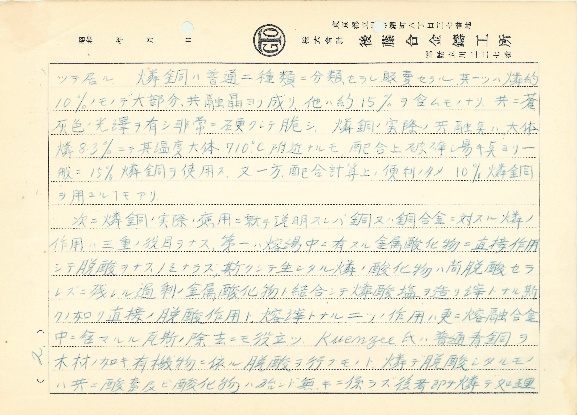 昭和 年 月 日
GTO
株式会社 後藤合金鑄工所
ツヽ居ル 燐銅ハ普通二種類ニ分類セラレ販賣セラル 其一ツハ燐約
10%ノモノデ大部分共融晶ヨリ成リ 他ハ約15%ヲ含ムモノナリ 共ニ蒼
灰色ノ光澤ヲ有シ非常ニ硬クシテ脆シ 燐銅ノ實際ノ共融点ハ大体
燐8.3%ニテ共温度大体710℃附近ナルモ 配合上 破碎シ易キ点ヨリ一
般ニ15%燐銅ヲ使用ス 又一方 配合計算上ノ便利ノタメ 10%燐銅
ヲ用ユルコトモアリ
次ニ燐銅ノ實際ノ應用ニ就テ説明スレバ 銅又ハ銅合金ニ対スル燐ノ
作用ハ三重ノ役目ヲナス 第一ハ熔湯中ニ有スル金属酸化物ニ直接作用
シテ脱酸ヲナスノミナラズ 斯クシテ生ジタル燐ノ酸化物ハ尚脱酸セラ
レズニ残レル過剰ノ金属酸化物ト結合シテ燐酸塩ヲ造リ滓トナル 斯
ノ如ク直接ノ脱酸作用ト熔滓トナル二ツノ作用ハ更ニ熔融合金
中ニ含マルル瓦斯ノ除去ニモ役立ツ Kuenzel氏ハ普通青銅ヲ
木材ノ如キ有機物ニ依ル脱酸ヲ行フモノト 燐デ脱酸シタルモノ
ハ共ニ酸素及ビ酸化物ハ殆ンド無キニ係ラズ 後者即チ燐デ処理